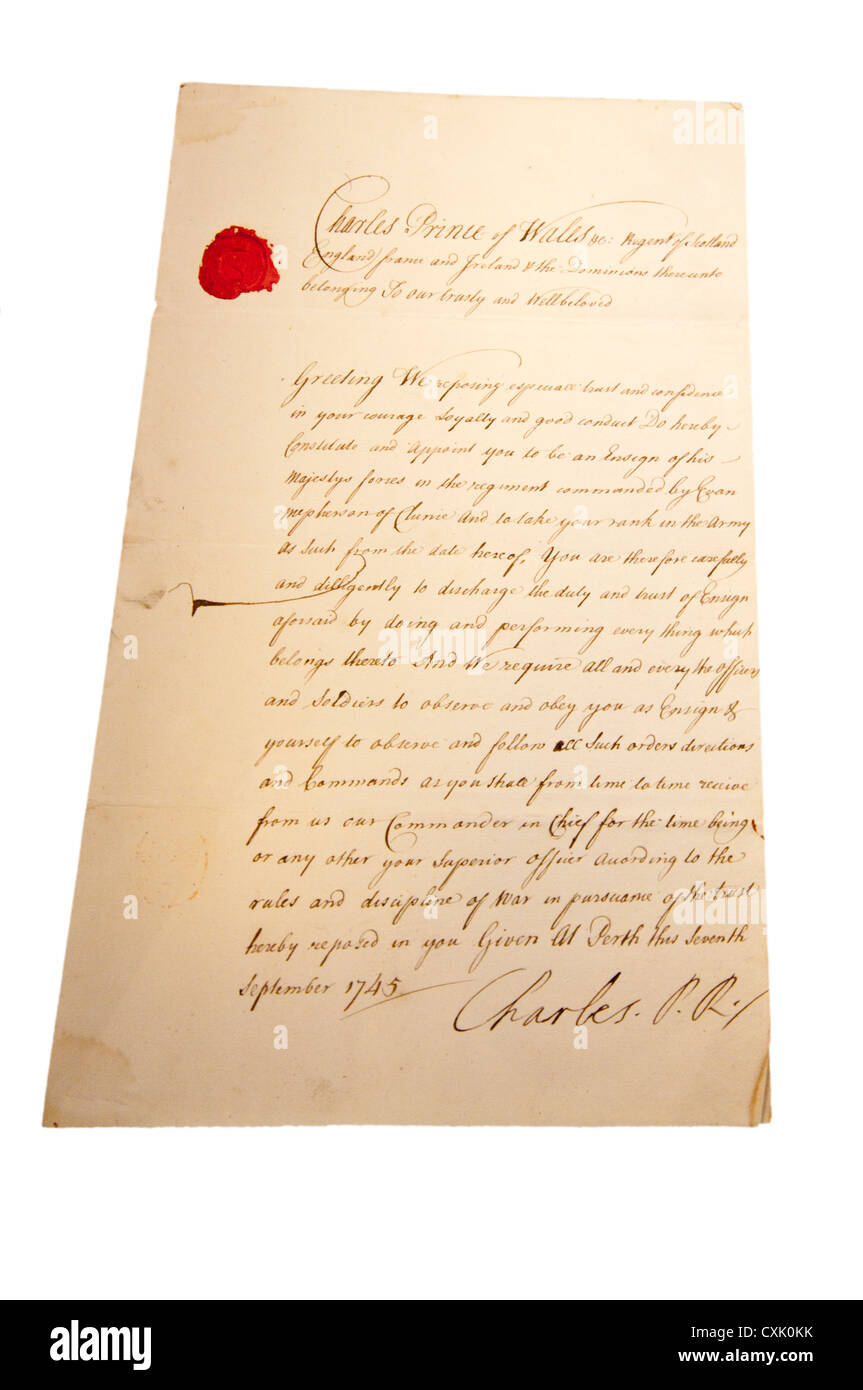 Charles Prince of Wales &c: Regent of Scotland
England france and Ireland & the Dominions thereunto
belonging To our trusty and Wellbeloved
Greeting We reposing especiall trust and confidence
in your courage Loyalty and good conduct Do hereby
Constitute and Appoint you to be an Ensign of his
Majestys forces in the regiment commanded by Evan
mcpherson of Clunie And to take your rank in the Army
as Such from the date hereof, You are therefore carefully
and diligently to discharge the duty and trust of Ensign
aforsaid by doing and performing every thing which
belongs thereto And We require all and every the officers
and Soldiers to observe and obey you as Ensign &
yourself to observe and follow all Such orders directions
and Commands as you shall from time to time receive
from us our Commander in Chief for the time being
or any other your Superior officer According to the
rules and discipline of War in pursuance of the trust
hereby reposed in you Given At Perth this Seventh
September 1745
Charles. P. R.
alamy
Image ID: CXK0KK
www.alamy.com